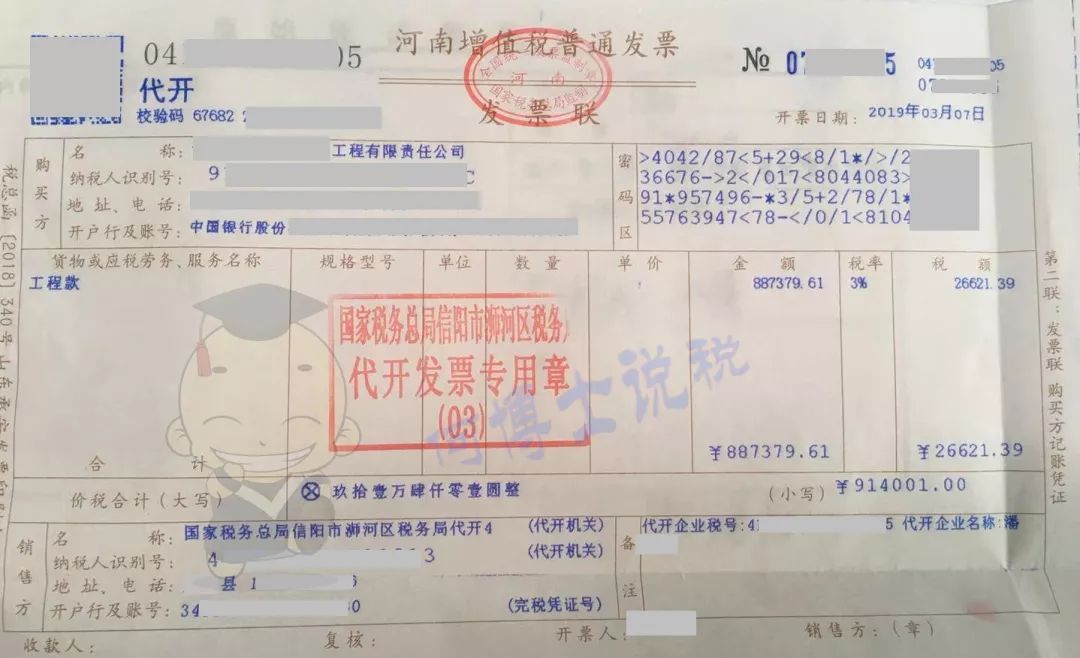 河南增值税普通发票
04 05
№ 07 5
04 05
07
代开
校验码 67682 2
发票联
全国统一发票监制章
河南
国家税务总局监制
开票日期: 2019年03月07日
购买方
名 称: 工程有限责任公司
纳税人识别号: 9 C
地 址、电 话:
开户行及账号: 中国银行股份
密码区
>4042/87<5+29<8/1*/>/2
36676->2</017<8044083>
91*957496-*3/5+2/78/1*
55763947<78-</0/1<8104
货物或应税劳务、服务名称 规格型号 单位 数 量 单 价 金 额 税率 税 额
工程款 887379.61 3% 26621.39
国家税务总局信阳市浉河区税务
代开发票专用章
(03)
阿博士说税
合 计 ¥887379.61 ¥26621.39
价税合计(大写) ⊗ 玖拾壹万肆仟零壹圆整 (小写) ¥914001.00
销售方
名 称: 国家税务总局信阳市浉河区税务局代开4 (代开机关)
纳税人识别号: 4 3 (代开机关)
地 址、电 话: 县1 6
开户行及账号: 34 80 (完税凭证号)
备注
代开企业税号:41 5 代开企业名称:潘
收款人: 复核: 开票人: 销售方:(章)
税总函[2018]340号
第二联:发票联 购买方记账凭证